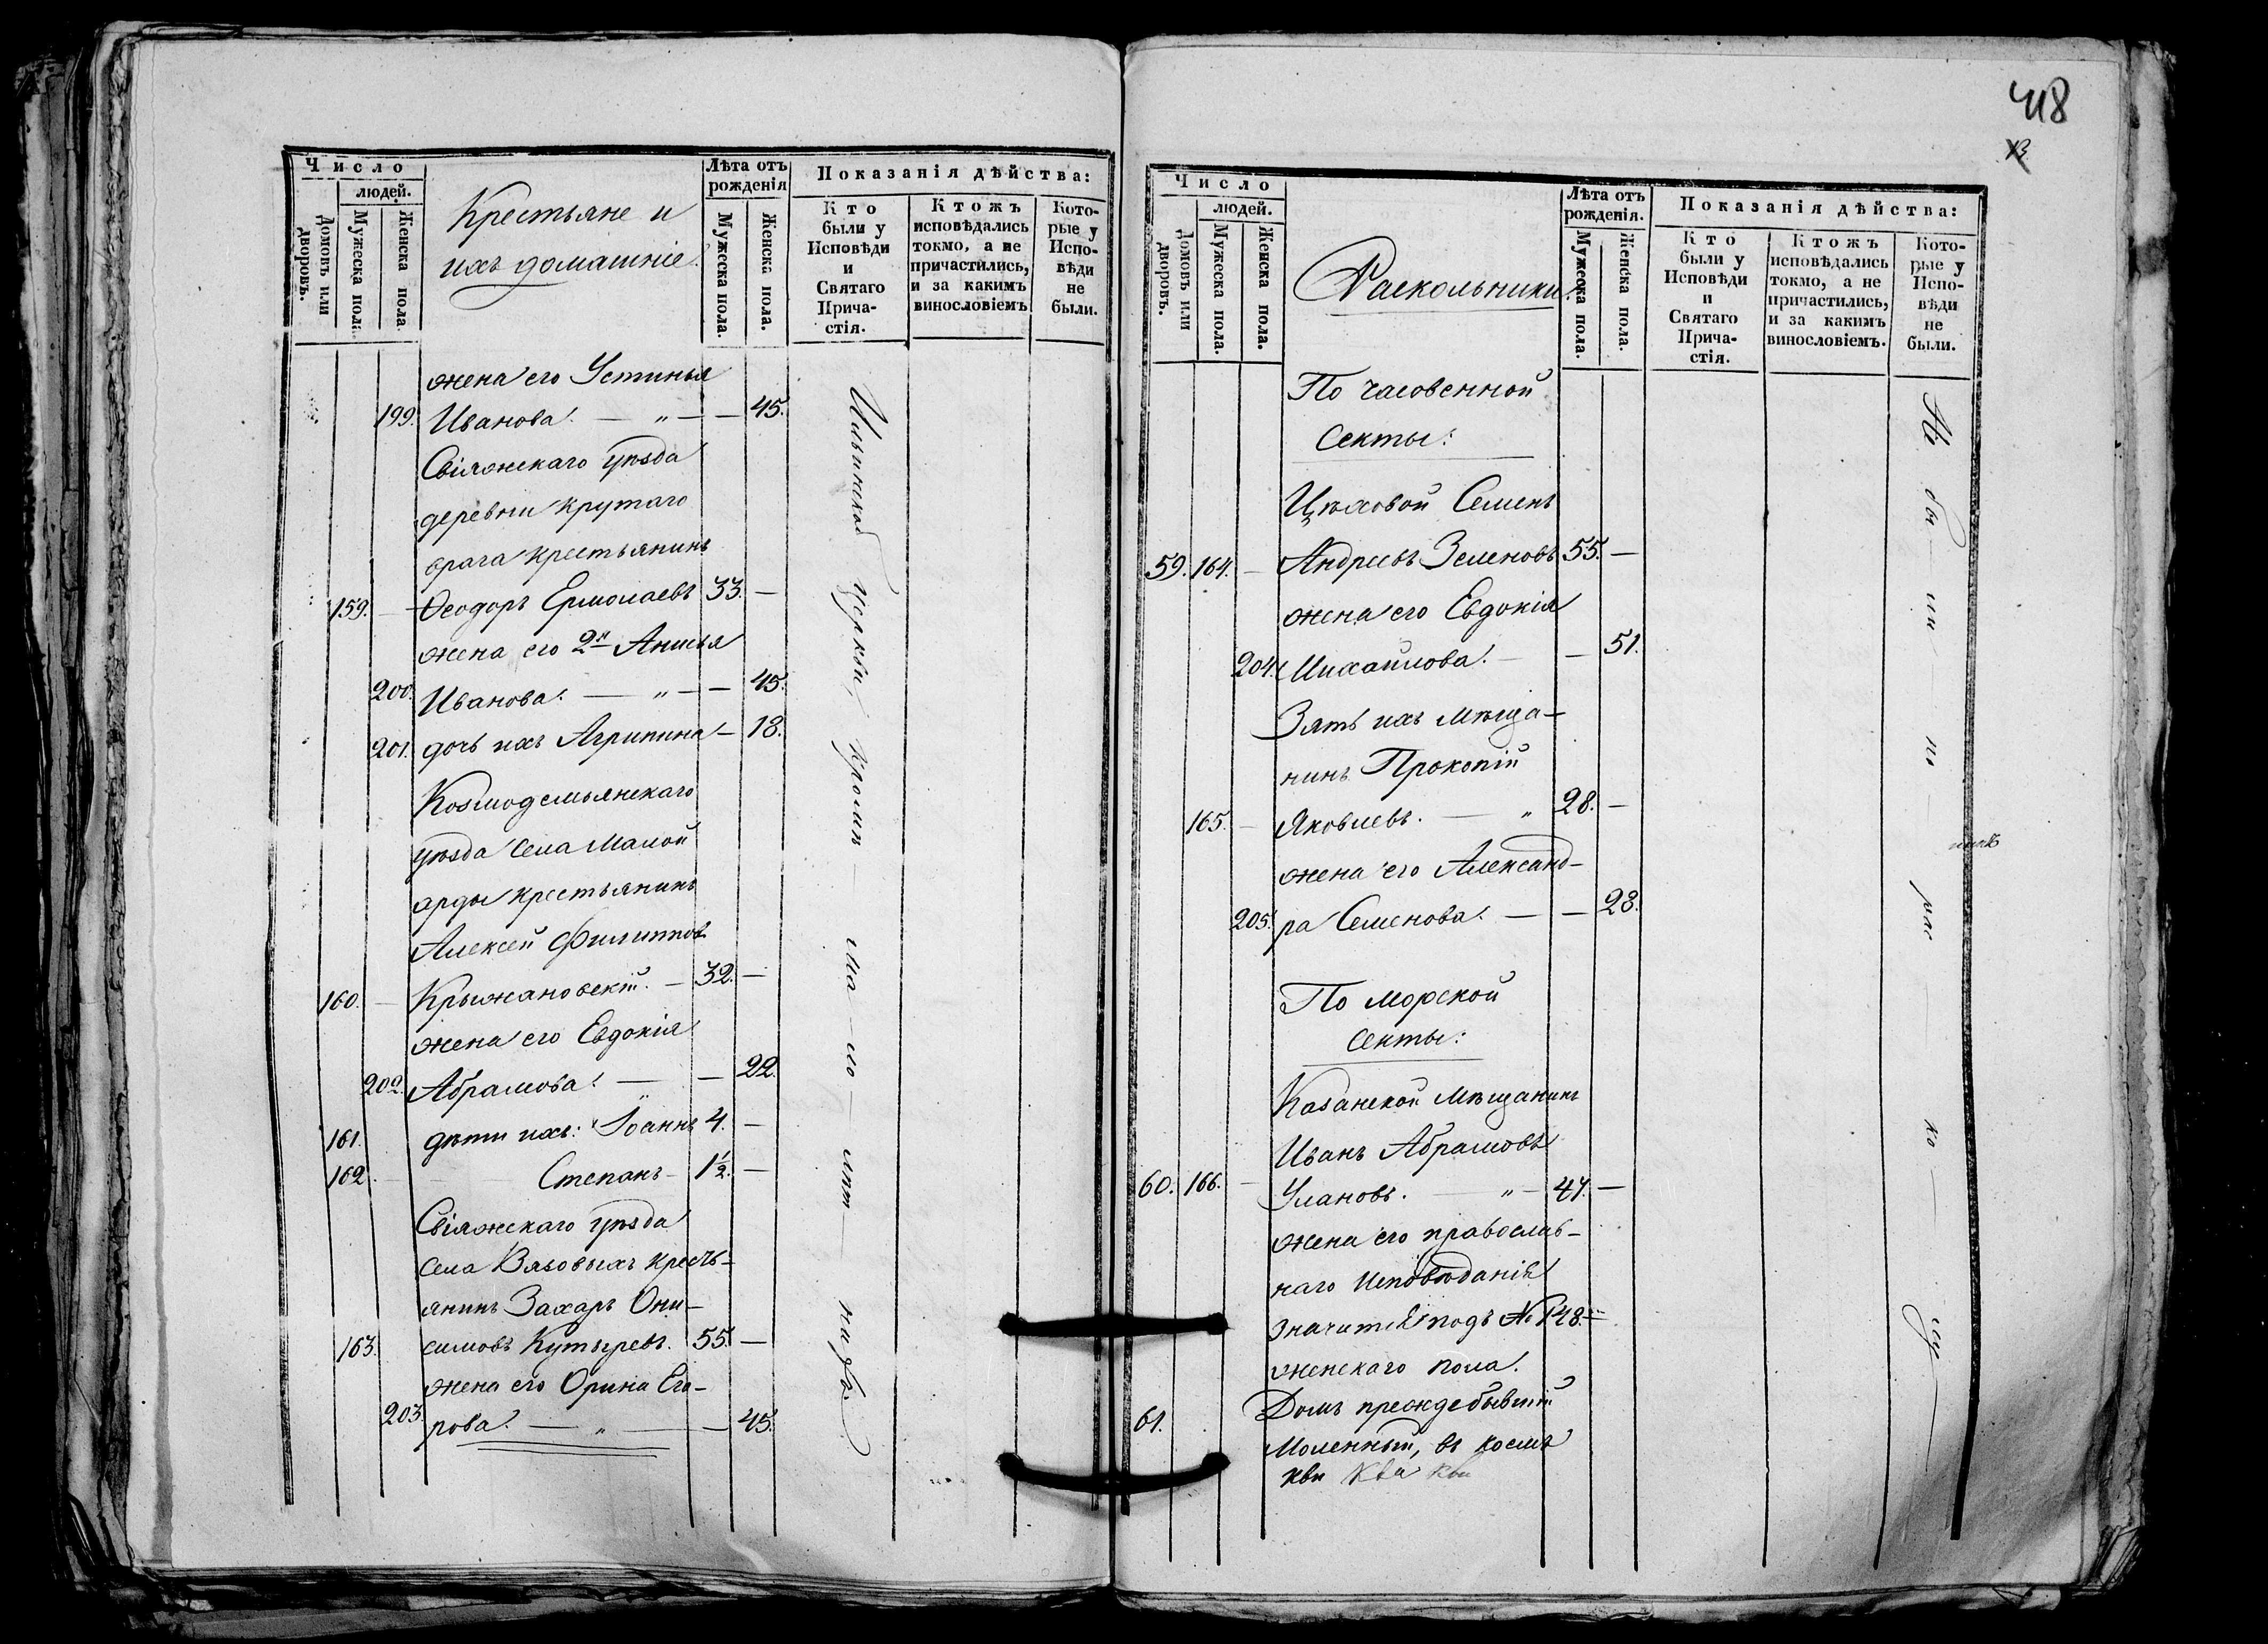 418
13
Число
людей.
Домовъ или дворовъ.
Мужеска пола.
Женска пола.
Крестьяне и
ихъ домашніе.
Лѣта отъ
рожденія
Мужеска пола.
Женска пола.
Показанія дѣйства:
Кто
были у
Исповѣди
и
Святаго
Прича-
стія.
Ктожъ
исповѣдались
токмо, а не
причастились,
и за какимъ
винословіемъ
Кото-
рые у
Испо-
вѣди
не
были.
жена его Устинья
199. Иванова. — „ — — 45.
Свіяжскаго уѣзда
деревни Крутаго
врага крестьянинъ
159. — Ѳеодоръ Ермолаевъ 33. —
жена его 2я Анисья
200. Иванова. — „ — — 45.
201. дочь ихъ Агрипина — 18.
Козмодемьянскаго
уѣзда села Малой
арды крестьянинъ
Алексей Филиппов
160. — Крыжановскій. — 32. —
жена его Евдокія
202. Абрамова. — „ — 22.
161. дѣти ихъ: Іоаннъ 4. —
162. — Степанъ — 1½. —
Свіяжскаго уѣзда
села Вязовыхъ кресть-
янинъ Захаръ Они-
163. симовъ Кутыревъ. 55. —
жена его Орина Его-
203. рова. — „ — — 45.
Ильинской церкви, кромѣ ма — ло — лѣт — нихъ
Число
людей.
Домовъ или дворовъ.
Мужеска пола.
Женска пола.
Раскольники.
Лѣта отъ
рожденія.
Мужеска пола.
Женска пола.
Показанія дѣйства:
Кто
были у
Исповѣди
и
Святаго
Прича-
стія.
Ктожъ
исповѣдались
токмо, а не
причастились,
и за какимъ
винословіемъ.
Кото-
рые у
Испо-
вѣди
не
были.
По часовенной
Секты:
Цѣховой Семенъ
59. 164. — Андреевъ Зеленовъ 55. —
жена его Евдокія
204. Михайлова. — — 51.
Зять ихъ мѣща-
нинъ Прокопій
165. — Яковлевъ. — „ 28. —
жена его Александ-
205. ра Семенова. — — 28.
По морской
секты:
Казанской мѣщанинъ
Иванъ Абрамовъ
60. 166. — Улановъ. — „ — 47. —
жена его православ-
наго исповѣданія
значится подъ № 148.
женскаго пола.
61. Домъ преждебывшій
Моленный, въ коемъ
кви ква кви
Не бы — ли — по — рас — ко — лу —